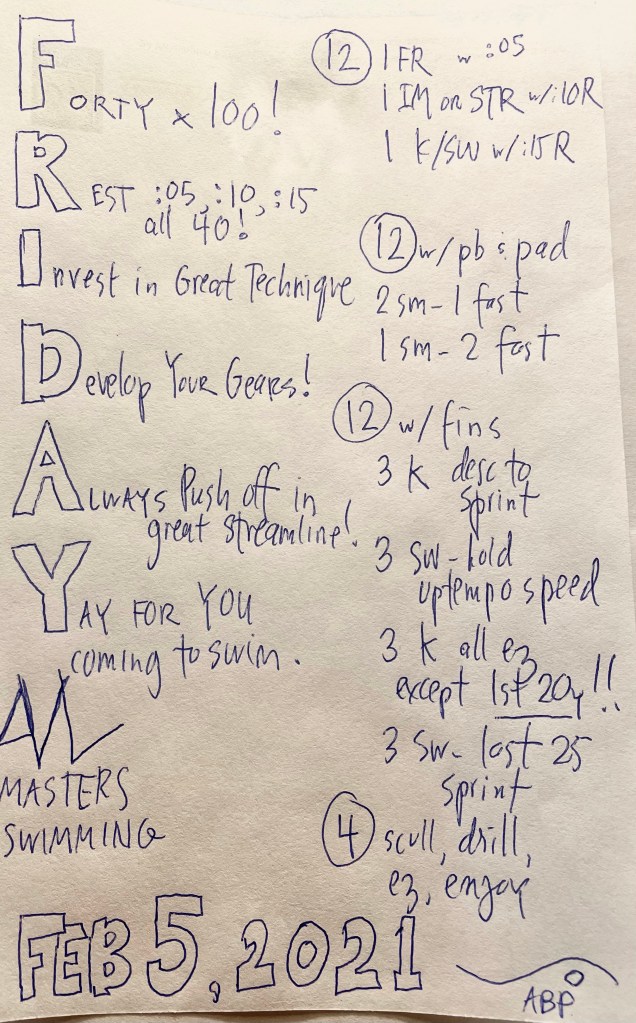 FORTY x 100!
REST :05, :10, :15
all 40!
Invest in Great Technique
Develop Your Gears!
ALWAYS Push off in
great streamline!
YAY FOR YOU
coming to swim.
MASTERS
SWIMMING
FEB 5, 2021
12 1 FR w :05
1 IM or STR w/:10R
1 K/SW w/:15R
12 w/ pb & pad
2 sm - 1 fast
1 sm - 2 fast
12 w/ fins
3 K desc to
sprint
3 sw - hold
uptempo speed
3 K all ez
except 1st 20y!!
3 sw - last 25
sprint
4 scull, drill,
ez, enjoy
ABP